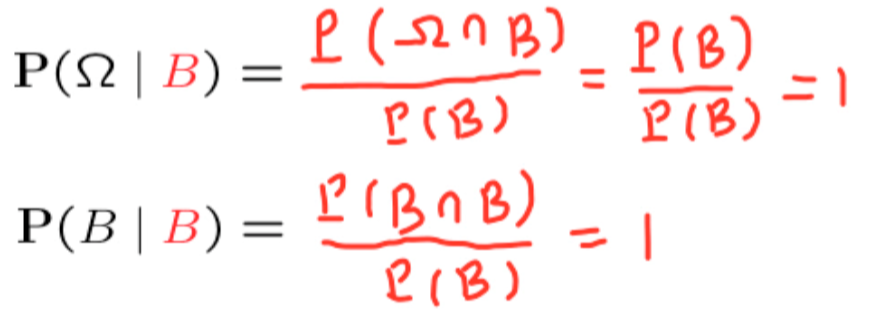 P(Ω | B) = P(Ω ∩ B) / P(B) = P(B) / P(B) = 1
P(B | B) = P(B ∩ B) / P(B) = 1